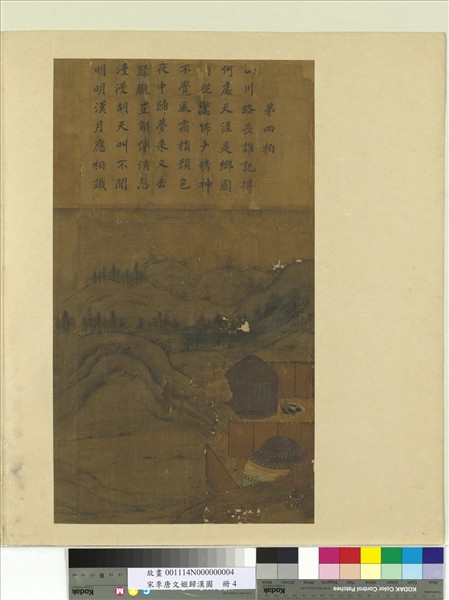 第四拍
山川路長誰記得
何處天涯是鄉國
從驚怖少精神
不覺風霜損顏色
夜中歸夢來又去
朦朧豈解傳消息
漫漫胡天叫不聞
明明漢月應相識
故畫 001114N000000004
宋李唐文姬歸漢圖 冊 4
Kodak
KODAK Color Control Patches